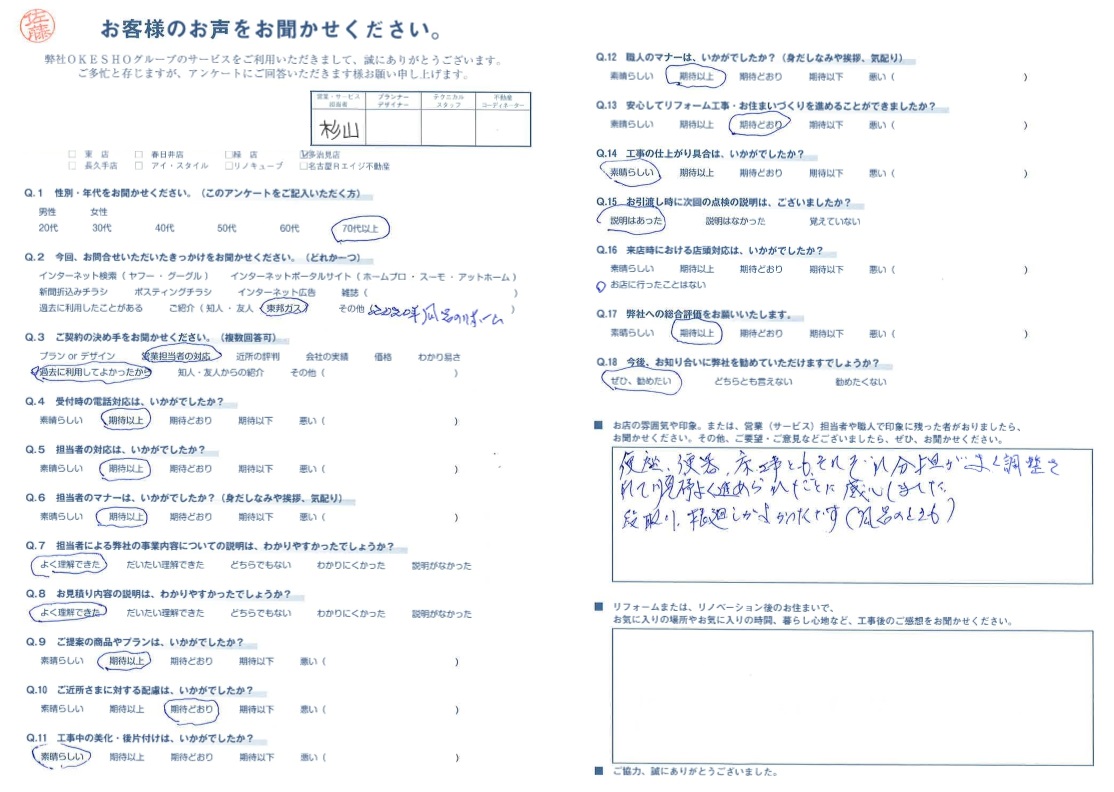 佐藤
お客様のお声をお聞かせください。
弊社OKESHOグループのサービスをご利用いただきまして、誠にありがとうございます。
ご多忙と存じますが、アンケートにご回答いただきます様お願い申し上げます。
営業・サービス担当者 プランナーデザイナー テクニカルスタッフ 不動産コーディネーター
杉山
□ 東 店 □ 春日井店 □ 店 ☑多治見店
□ 長久手店 □ アイ・スタイル □リノキューブ □名古屋Rエイジ不動産
Q.1 性別・年代をお聞かせください。(このアンケートをご記入いただく方)
男性 女性
20代 30代 40代 50代 60代 70代以上
Q.2 今回、お問合せいただいたきっかけをお聞かせください。(どれか一つ)
インターネット検索(ヤフー・グーグル) インターネットポータルサイト(ホームプロ・スーモ・アットホーム)
新聞折込みチラシ ポスティングチラシ インターネット広告 雑誌( )
過去に利用したことがある ご紹介(知人・友人 東邦ガス) その他( 2020年 風呂のリホーム )
Q.3 ご契約の決め手をお聞かせください。(複数回答可)
プラン or デザイン 営業担当者の対応 近所の評判 会社の実績 価格 わかり易さ
過去に利用してよかったから 知人・友人からの紹介 その他( )
Q.4 受付時の電話対応は、いかがでしたか?
素晴らしい 期待以上 期待どおり 期待以下 悪い( )
Q.5 担当者の対応は、いかがでしたか?
素晴らしい 期待以上 期待どおり 期待以下 悪い( )
Q.6 担当者のマナーは、いかがでしたか?(身だしなみや挨拶、気配り)
素晴らしい 期待以上 期待どおり 期待以下 悪い( )
Q.7 担当者による弊社の事業内容についての説明は、わかりやすかったでしょうか?
よく理解できた だいたい理解できた どちらでもない わかりにくかった 説明がなかった
Q.8 お見積り内容の説明は、わかりやすかったでしょうか?
よく理解できた だいたい理解できた どちらでもない わかりにくかった 説明がなかった
Q.9 ご提案の商品やプランは、いかがでしたか?
素晴らしい 期待以上 期待どおり 期待以下 悪い( )
Q.10 ご近所さまに対する配慮は、いかがでしたか?
素晴らしい 期待以上 期待どおり 期待以下 悪い( )
Q.11 工事中の美化・後片付けは、いかがでしたか?
素晴らしい 期待以上 期待どおり 期待以下 悪い( )
Q.12 職人のマナーは、いかがでしたか?(身だしなみや挨拶、気配り)
素晴らしい 期待以上 期待どおり 期待以下 悪い( )
Q.13 安心してリフォーム工事・お住まいづくりを進めることができましたか?
素晴らしい 期待以上 期待どおり 期待以下 悪い( )
Q.14 工事の仕上がり具合は、いかがでしたか?
素晴らしい 期待以上 期待どおり 期待以下 悪い( )
Q.15 お引渡し時に次回の点検の説明は、ございましたか?
説明はあった 説明はなかった 覚えていない
Q.16 来店時における店頭対応は、いかがでしたか?
素晴らしい 期待以上 期待どおり 期待以下 悪い( )
お店に行ったことはない
Q.17 弊社への総合評価をお願いいたします。
素晴らしい 期待以上 期待どおり 期待以下 悪い( )
Q.18 今後、お知り合いに弊社を勧めていただけますでしょうか?
ぜひ、勧めたい どちらとも言えない 勧めたくない
■ お店の雰囲気や印象。または、営業(サービス)担当者や職人で印象に残った者がおりましたら、
お聞かせください。その他、ご要望・ご意見などございましたら、ぜひ、お聞かせください。
便座、便器、床 ともそれぞれ分担がよく調整さ
れて順序よく進められたことに感心しました。
段取り、根廻しがよかったです(風呂のときも)
■ リフォームまたは、リノベーション後のお住まいで、
お気に入りの場所やお気に入りの時間、暮らし心地など、工事後のご感想をお聞かせください。
■ ご協力、誠にありがとうございました。